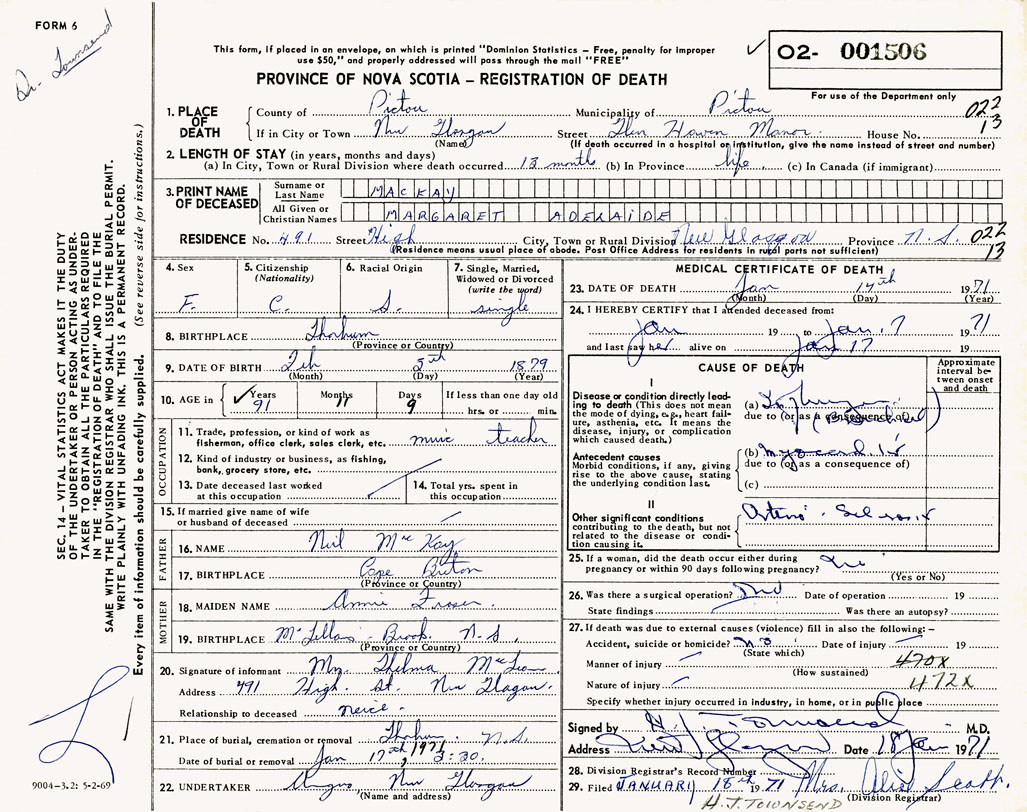 FORM 6
Dr. Townsend
This form, if placed in an envelope, on which is printed "Dominion Statistics – Free, penalty for improper
use $50," and properly addressed will pass through the mail "FREE"
✓ 02- 001506
For use of the Department only
PROVINCE OF NOVA SCOTIA – REGISTRATION OF DEATH
022
13
1. PLACE OF DEATH
County of Pictou Municipality of Pictou
If in City or Town New Glasgow Street Glen Haven Manor House No.
(Name) (If death occurred in a hospital or institution, give the name instead of street and number)
2. LENGTH OF STAY (in years, months and days)
(a) In City, Town or Rural Division where death occurred 13 months (b) In Province life (c) In Canada (if immigrant)
3. PRINT NAME OF DECEASED
Surname or Last Name MACKAY
All Given or Christian Names MARGARET ADELAIDE
RESIDENCE No. 491 Street High City, Town or Rural Division New Glasgow Province N.S. 022
13
(Residence means usual place of abode. Post Office Address for residents in rural parts not sufficient)
4. Sex F.
5. Citizenship (Nationality) C.
6. Racial Origin S.
7. Single, Married, Widowed or Divorced (write the word) single
8. BIRTHPLACE Thorburn
(Province or Country)
9. DATE OF BIRTH Feb 5th 1879
(Month) (Day) (Year)
10. AGE in ✓ Years 91 Months 11 Days 9 If less than one day old
hrs. or min.
OCCUPATION
11. Trade, profession, or kind of work as
fisherman, office clerk, sales clerk, etc. music teacher
12. Kind of industry or business, as fishing,
bank, grocery store, etc.
13. Date deceased last worked
at this occupation
14. Total yrs. spent in
this occupation
15. If married give name of wife
or husband of deceased
FATHER
16. NAME Neil MacKay
17. BIRTHPLACE Cape Breton
(Province or Country)
MOTHER
18. MAIDEN NAME Annie Fraser
19. BIRTHPLACE McLellans Brook N.S.
(Province or Country)
20. Signature of informant Mrs. Thelma McLean
Address 491 High St. New Glasgow.
Relationship to deceased neice.
21. Place of burial, cremation or removal Thorburn N.S.
Date of burial or removal Jan 17th 1971, 2:30.
22. UNDERTAKER Angus New Glasgow
(Name and address)
MEDICAL CERTIFICATE OF DEATH
23. DATE OF DEATH Jan 14th 1971
(Month) (Day) (Year)
24. I HEREBY CERTIFY that I attended deceased from:
Jan 19 to Jan. 7 1971
and last saw her alive on Jan 17 19
CAUSE OF DEATH
Approximate interval between onset and death
I
Disease or condition directly leading
to death (This does not mean
the mode of dying, e.g., heart failure,
asthenia, etc. It means the
disease, injury, or complication
which caused death.)
(a)
due to (or as a consequence of)
Antecedent causes
Morbid conditions, if any, giving
rise to the above cause, stating
the underlying condition last.
(b)
due to (or as a consequence of)
(c)
II
Other significant conditions
contributing to the death, but not
related to the disease or condition
causing it.
Arterio-Sclerosis
25. If a woman, did the death occur either during
pregnancy or within 90 days following pregnancy?
(Yes or No)
26. Was there a surgical operation? no Date of operation 19
State findings Was there an autopsy?
27. If death was due to external causes (violence) fill in also the following:–
Accident, suicide or homicide? no Date of injury 19
(State which)
Manner of injury 470X
(How sustained)
Nature of injury 472X
Specify whether injury occurred in industry, in home, or in public place
Signed by H. J. Townsend M.D.
Address New Glasgow Date 18 Jan 1971
28. Division Registrar's Record Number
29. Filed JANUARY 18th 1971 Mrs. Alice Scott.
(Division Registrar)
H.J. TOWNSEND
SEC. 14 – VITAL STATISTICS ACT MAKES IT THE DUTY
OF THE UNDERTAKER OR PERSON ACTING AS UNDERTAKER
TO OBTAIN ALL THE PARTICULARS REQUIRED
IN THE "REGISTRATION OF DEATH" AND TO FILE THE
SAME WITH THE DIVISION REGISTRAR WHO SHALL ISSUE THE BURIAL PERMIT.
WRITE PLAINLY WITH UNFADING INK. THIS IS A PERMANENT RECORD.
Every item of information should be carefully supplied. (See reverse side for instructions.)
9004–3.2: 5-2-69